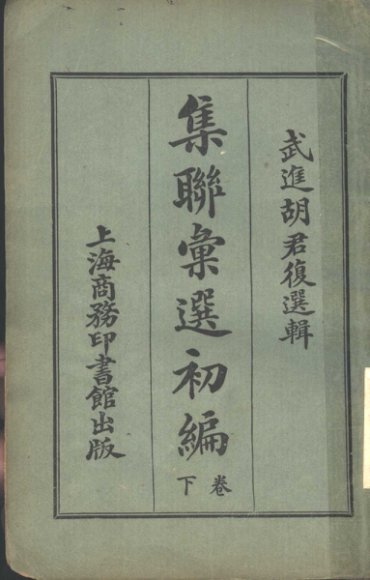 武進胡君復選輯
集聯彙選初編
卷下
上海商務印書館出版